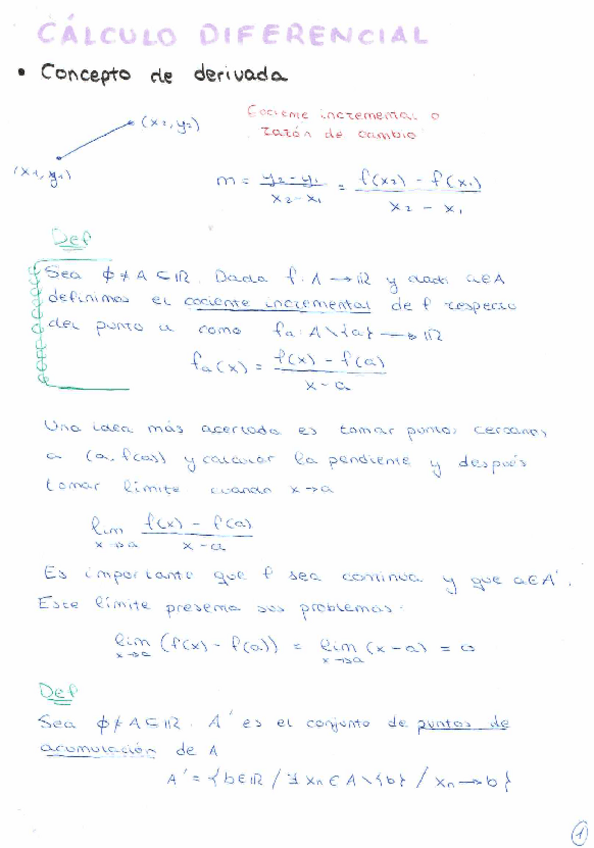 CÁLCULO DIFERENCIAL
• Concepto de derivada
(x₂, y₂)
Cociente incremental o
razón de cambio
(x₁, y₁)
m = (y₂ - y₁)/(x₂ - x₁) = (f(x₂) - f(x₁))/(x₂ - x₁)
Def
Sea ϕ ≠ A ⊆ ℝ. Dada f: A → ℝ y dado a ∈ A
definimos el cociente incremental de f respecto
del punto a como fₐ: A\{a} → ℝ
fₐ(x) = (f(x) - f(a))/(x - a)
Una idea más acertada es tomar puntos cercanos
a (a, f(a)) y calcular la pendiente y después
tomar límite cuando x→a
lim x→a (f(x) - f(a))/(x - a)
Es importante que f sea continua y que a ∈ A'.
Este límite presenta sus problemas.
lim x→a (f(x) - f(a)) = lim x→a (x - a) = 0
Def
Sea ϕ ≠ A ⊆ ℝ. A' es el conjunto de puntos de
acumulación de A
A' = {b ∈ ℝ / ∃ xₙ ∈ A\{b} / xₙ → b}
1